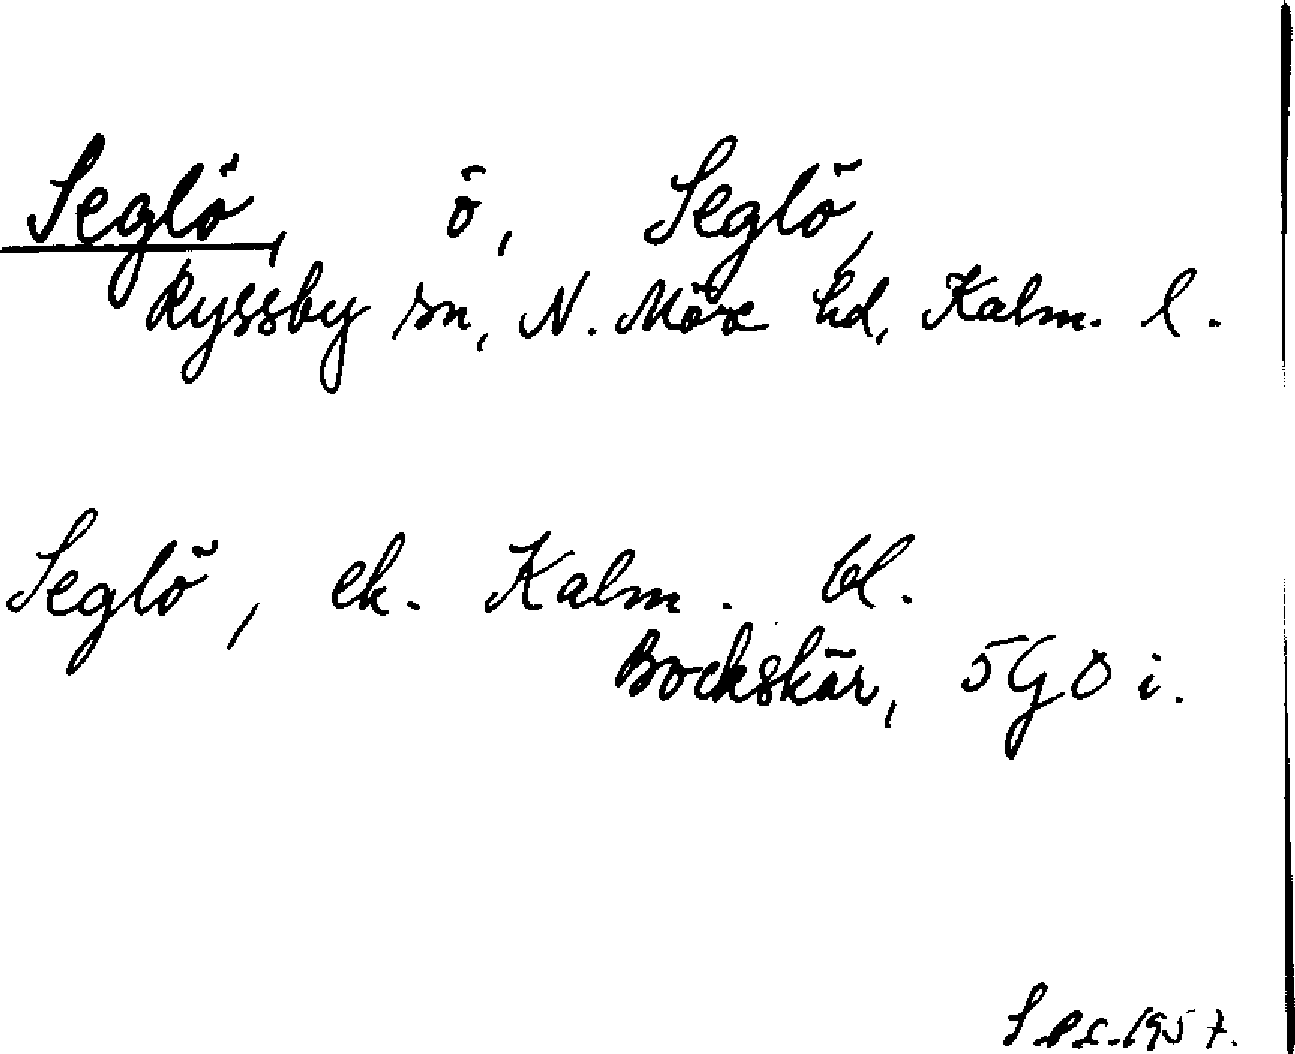 Seglö, ö, Seglö,
Ryssby sn, N. Möre hd, Kalm. l.
Seglö, ek. Kalm. bl.
Bockskär, 5G8 i.
1957.